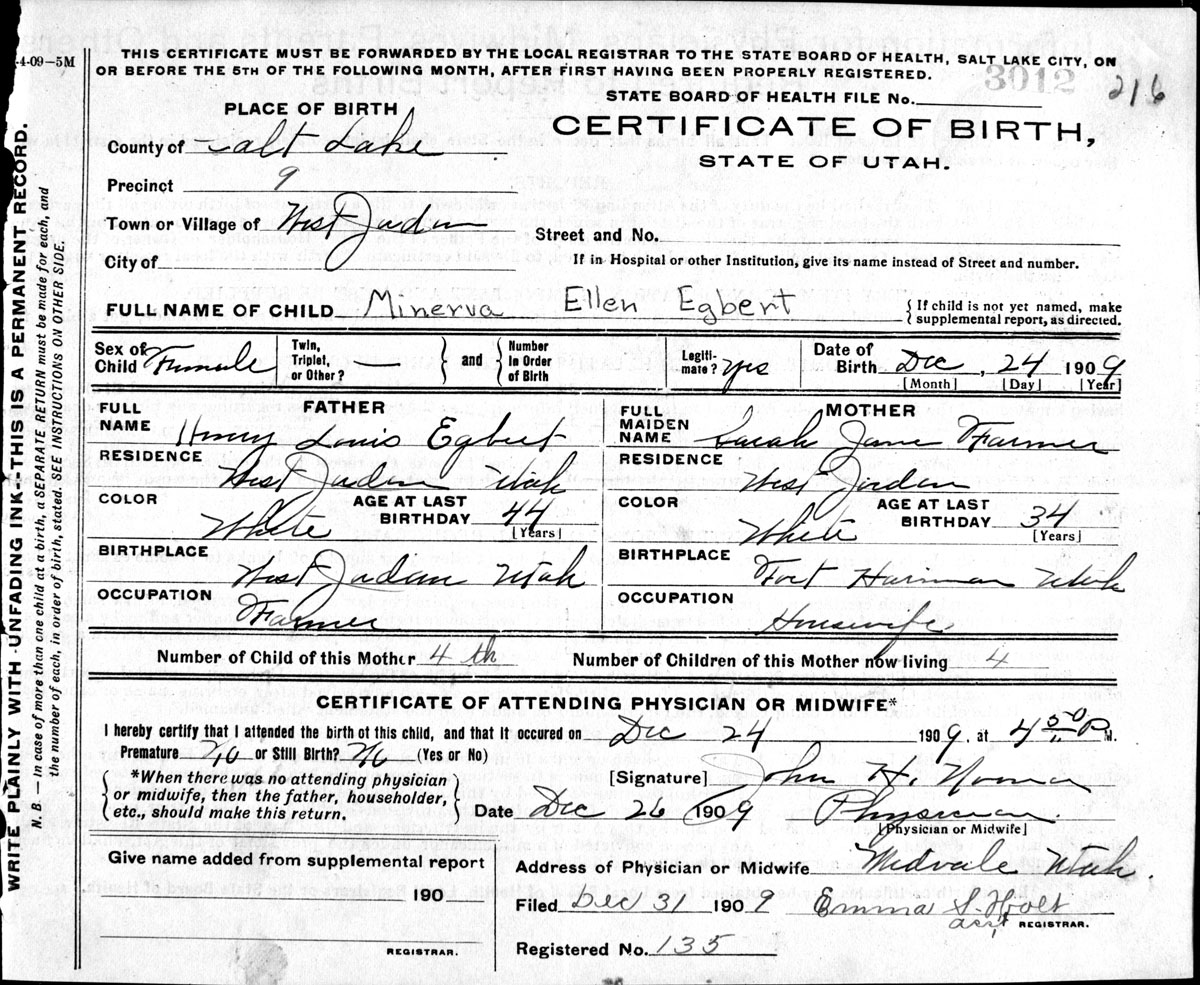 -4-09-5M
THIS CERTIFICATE MUST BE FORWARDED BY THE LOCAL REGISTRAR TO THE STATE BOARD OF HEALTH, SALT LAKE CITY, ON
OR BEFORE THE 5TH OF THE FOLLOWING MONTH, AFTER FIRST HAVING BEEN PROPERLY REGISTERED.
3012 216
STATE BOARD OF HEALTH FILE No.
PLACE OF BIRTH
CERTIFICATE OF BIRTH,
STATE OF UTAH.
County of Salt Lake
Precinct 9
Town or Village of West Jordan
Street and No.
City of
If in Hospital or other Institution, give its name instead of Street and number.
FULL NAME OF CHILD Minerva Ellen Egbert { If child is not yet named, make supplemental report, as directed.
Sex of Child Female Twin, Triplet, or Other? } and { Number in Order of Birth Legiti-mate? yes Date of Birth Dec, 24 1909
[Month] [Day] [Year]
FATHER
FULL NAME Henry Louis Egbert
RESIDENCE West Jordan Utah
COLOR White AGE AT LAST BIRTHDAY 44 [Years]
BIRTHPLACE West Jordan Utah
OCCUPATION Farmer
MOTHER
FULL MAIDEN NAME Sarah Jane Farmer
RESIDENCE West Jordan
COLOR White AGE AT LAST BIRTHDAY 34 [Years]
BIRTHPLACE Fort Harman Utah
OCCUPATION Housewife
Number of Child of this Mother 4th Number of Children of this Mother now living 4
CERTIFICATE OF ATTENDING PHYSICIAN OR MIDWIFE*
I hereby certify that I attended the birth of this child, and that it occured on Dec 24 1909, at 4 50 P M.
Premature No or Still Birth? No (Yes or No)
{ *When there was no attending physician
or midwife, then the father, householder,
etc., should make this return. }
[Signature] John H.
Date Dec 26 1909 Physician.
[Physician or Midwife]
Give name added from supplemental report
190
REGISTRAR.
Address of Physician or Midwife Midvale Utah.
Filed Dec 31 1909 Emma S. Holt
asst REGISTRAR.
Registered No. 135
WRITE PLAINLY WITH UNFADING INK-THIS IS A PERMANENT RECORD.
N. B. — In case of more than one child at a birth, a SEPARATE RETURN must be made for each, and
the number of each, in order of birth, stated. SEE INSTRUCTIONS ON OTHER SIDE.